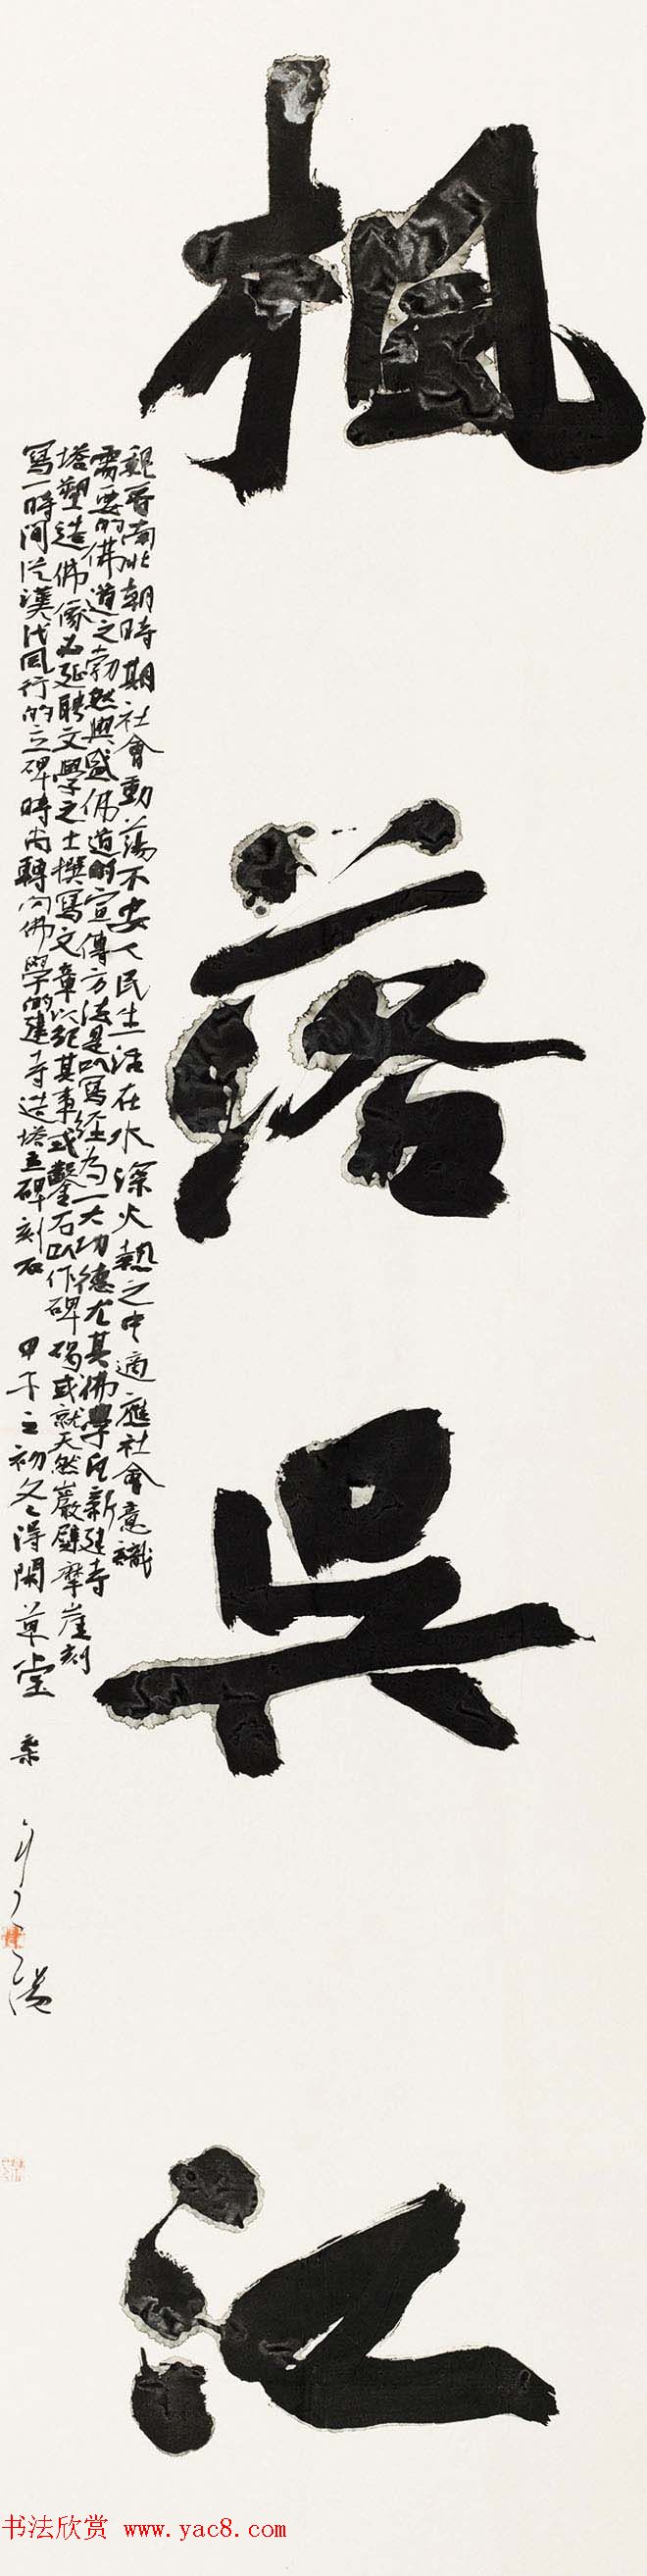 楓落吳江
魏晉南北朝時期社會動蕩不安人民生活在水深火熱之中適應社會意識
需要的佛道之勃然興盛佛道的宣傳方法是以寫經為一大功德尤其佛學凡新建寺
塔塑造佛像必延聘文學之士撰寫文章以紀其事或鑿石以作碑碣或就天然巖壁摩崖刻
寫一時間從漢代風行的立碑時尚轉向佛學的建寺造塔立碑刻石
甲子之初冬得閑草堂
书法欣赏 www.yac8.com